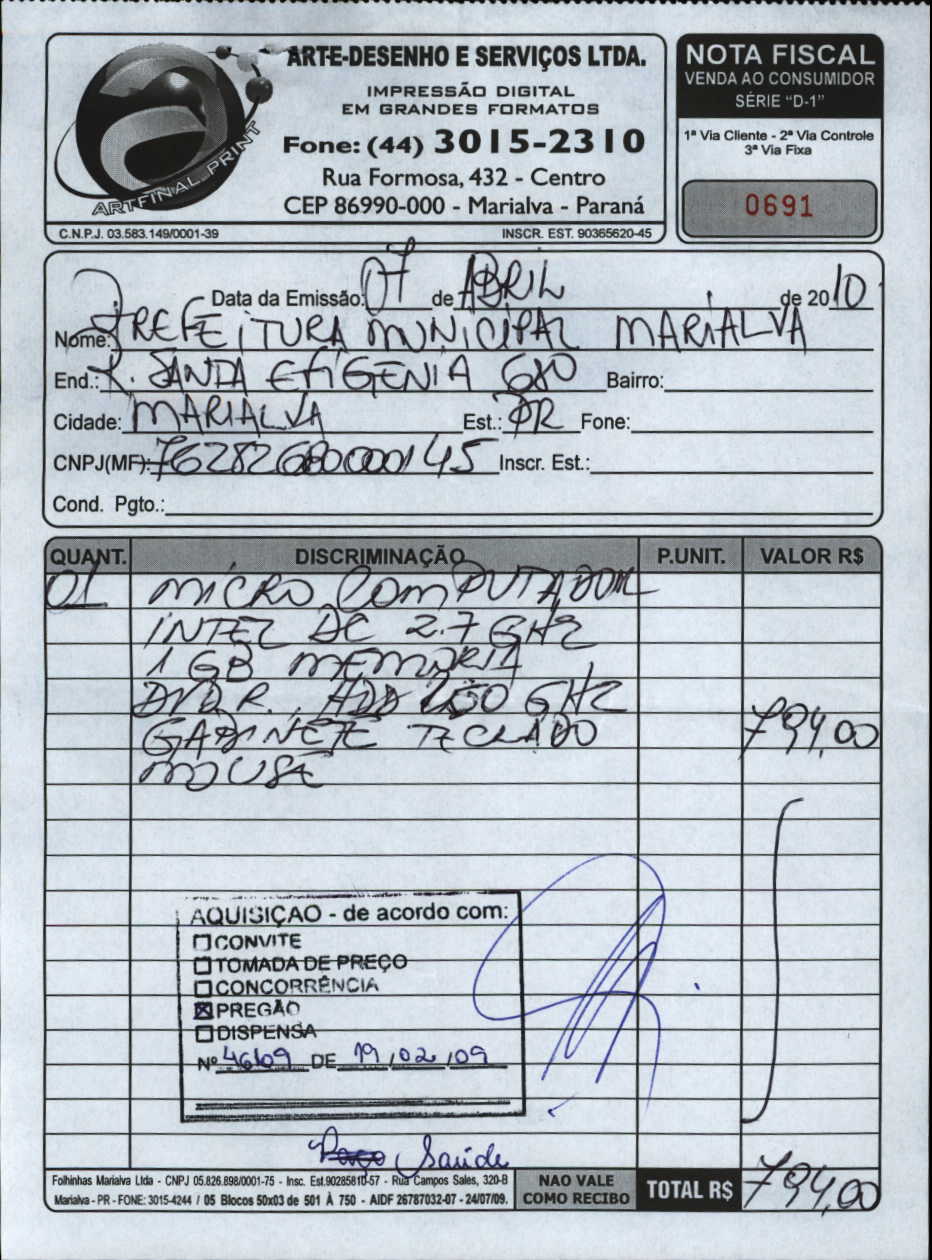 ARTE-DESENHO E SERVIÇOS LTDA.
IMPRESSÃO DIGITAL
EM GRANDES FORMATOS
Fone: (44) 3015-2310
Rua Formosa, 432 - Centro
CEP 86990-000 - Marialva - Paraná
ARTFINAL PRINT
C.N.P.J. 03.583.149/0001-39
INSCR. EST. 90365620-45
NOTA FISCAL
VENDA AO CONSUMIDOR
SÉRIE "D-1"
1ª Via Cliente - 2ª Via Controle
3ª Via Fixa
0691
Data da Emissão: 07 de ABRIL de 2010
Nome: PREFEITURA MUNICIPAL MARIALVA
End.: R. SANTA EFIGENIA 680 Bairro:
Cidade: MARIALVA Est.: PR Fone:
CNPJ(MF): 76282680000145 Inscr. Est.:
Cond. Pgto.:
QUANT. DISCRIMINAÇÃO P.UNIT. VALOR R$
01 MICRO COMPUTADOR
INTEL DC 2.7 GHZ
1 GB MEMORIA
DVDR.. HDD 250 GHZ
GABINETE TECLADO 794,00
MOUSE
AQUISIÇAO - de acordo com:
CONVITE
TOMADA DE PREÇO
CONCORRÊNCIA
PREGÃO
DISPENSA
Nº 46109 DE 19/02/09
Saúde
Folhinhas Marialva Ltda - CNPJ 05.826.898/0001-75 - Insc. Est.90285810-57 - Rua Campos Sales, 320-B
Marialva - PR - FONE: 3015-4244 / 05 Blocos 50x03 de 501 À 750 - AIDF 26787032-07 - 24/07/09.
NAO VALE
COMO RECIBO
TOTAL R$ 794,00